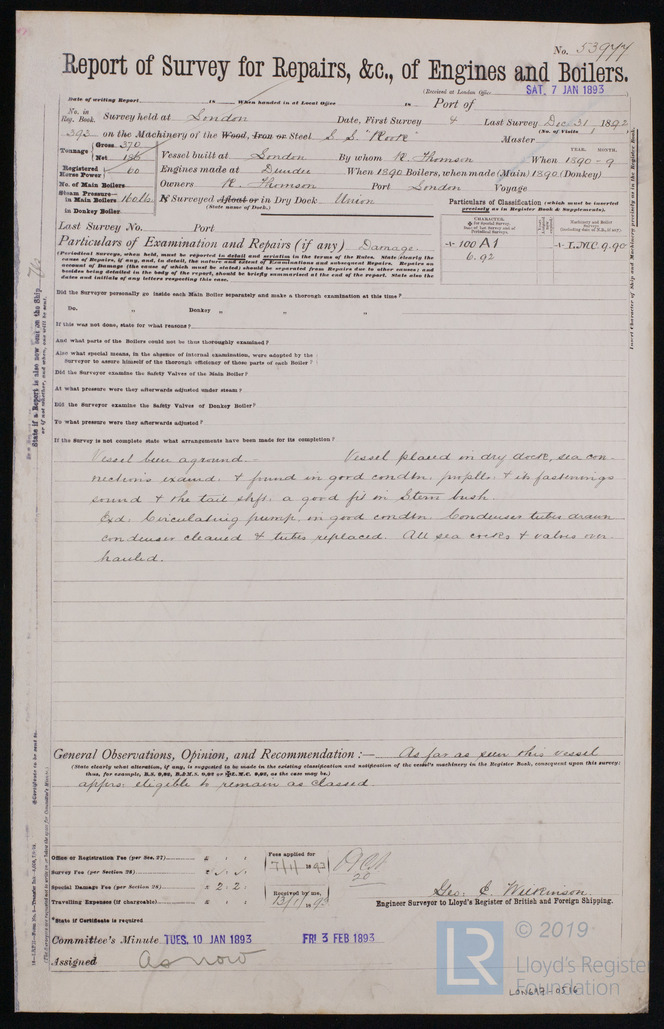 No. 53977
Report of Survey for Repairs, &c., of Engines and Boilers.
(Received at London Office SAT. 7 JAN 1893
Date of writing Report 18 When handed in at Local Office 18 Port of
No. in Reg. Book. Survey held at London Date, First Survey 4 Last Survey Dec 31 1892
(No. of Visits 1)
393 on the Machinery of the Wood, Iron or Steel S.S. "Rook" Master
Tonnage Gross 370 Net 186 Vessel built at London By whom R. Thomson When YEAR. MONTH. 1890 - 9
Registered Horse Power 60 Engines made at Dundee When 1890 Boilers, when made (Main) 1890 (Donkey)
No. of Main Boilers Owners R. Thomson Port London Voyage
Steam Pressure in Main Boilers 160 lb. If Surveyed Afloat or in Dry Dock Union
(State name of Dock.)
in Donkey Boiler
Particulars of Classification (which must be inserted precisely as in Register Book & Supplements).
Last Survey No. Port
CHARACTER. for Special Survey. Date of Last Survey and of Periodical Surveys.
Machinery and Boiler Surveys (including date of N.B., if any).
+ 100 A1 + L.M.C. 9.90
6.92
Particulars of Examination and Repairs (if any) Damage
(Periodical Surveys, when held, must be reported in detail and seriatim in the terms of the Rules. State clearly the
cause of Repairs, if any, and, in detail, the nature and extent of Examinations and subsequent Repairs. Repairs on
account of Damage (the cause of which must be stated) should be separated from Repairs due to other causes; and
besides being detailed in the body of the report, should be briefly summarised at the end of the report. State also the
dates and initials of any letters respecting this case.
Did the Surveyor personally go inside each Main Boiler separately and make a thorough examination at this time?
Do. „ Donkey „ „ „
If this was not done, state for what reasons?
And what parts of the Boilers could not be thus thoroughly examined?
Also what special means, in the absence of internal examination, were adopted by the
Surveyor to assure himself of the thorough efficiency of those parts of each Boiler?
Did the Surveyor examine the Safety Valves of the Main Boiler?
At what pressure were they afterwards adjusted under steam?
Did the Surveyor examine the Safety Valves of Donkey Boiler?
To what pressure were they afterwards adjusted?
If the Survey is not complete state what arrangements have been made for its completion?
Vessel been aground - Vessel placed in dry dock, sea con-
nections examd: & found in good condtn: proplle: & its fastenings
sound & the tail shft: a good fit in Stern bush.
Exd: Circulating pump, in good condtn. Condenser tubes drawn
condenser cleaned & tubes replaced. All sea cocks & valves over-
hauled.
General Observations, Opinion, and Recommendation :— As far as seen this vessel
(State clearly what alteration, if any, is suggested to be made in the existing classification and notification of the vessel's machinery in the Register Book, consequent upon this survey:
thus, for example, B.S. 9,92, B.&M.S. 9,92 or L.M.C. 9,92, as the case may be.)
appers: eligible to remain as classed
Office or Registration Fee (per Sec. 27) £ : :
Survey Fee (per Section 28) £
Special Damage Fee (per Section 28) £ 2 : 2 :
Travelling Expenses (if chargeable) £ : :
Fees applied for
7/1/1893
Received by me,
13/1/1893
*State if Certificate is required
Geo: C. Wilkinson.
Engineer Surveyor to Lloyd's Register of British and Foreign Shipping.
Committee's Minute TUES. 10 JAN 1893 FRI 3 FEB 1893
Assigned As now
State if a Report is also now sent on the Ship.
or if not, whether, and when, one will be sent.
Insert Character of Ship and Machinery precisely as in the Register Book.
© 2019
LR Lloyd's Register
Foundation